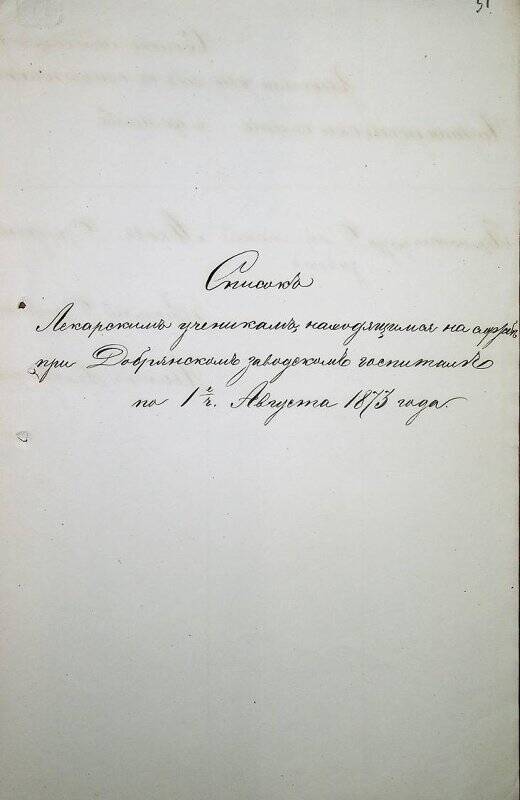 51
Списокъ
Лекарскимъ ученикамъ, находящимся на службѣ
при Добрянскомъ заводскомъ госпиталѣ
по 1 е ч. Августа 1873 года.